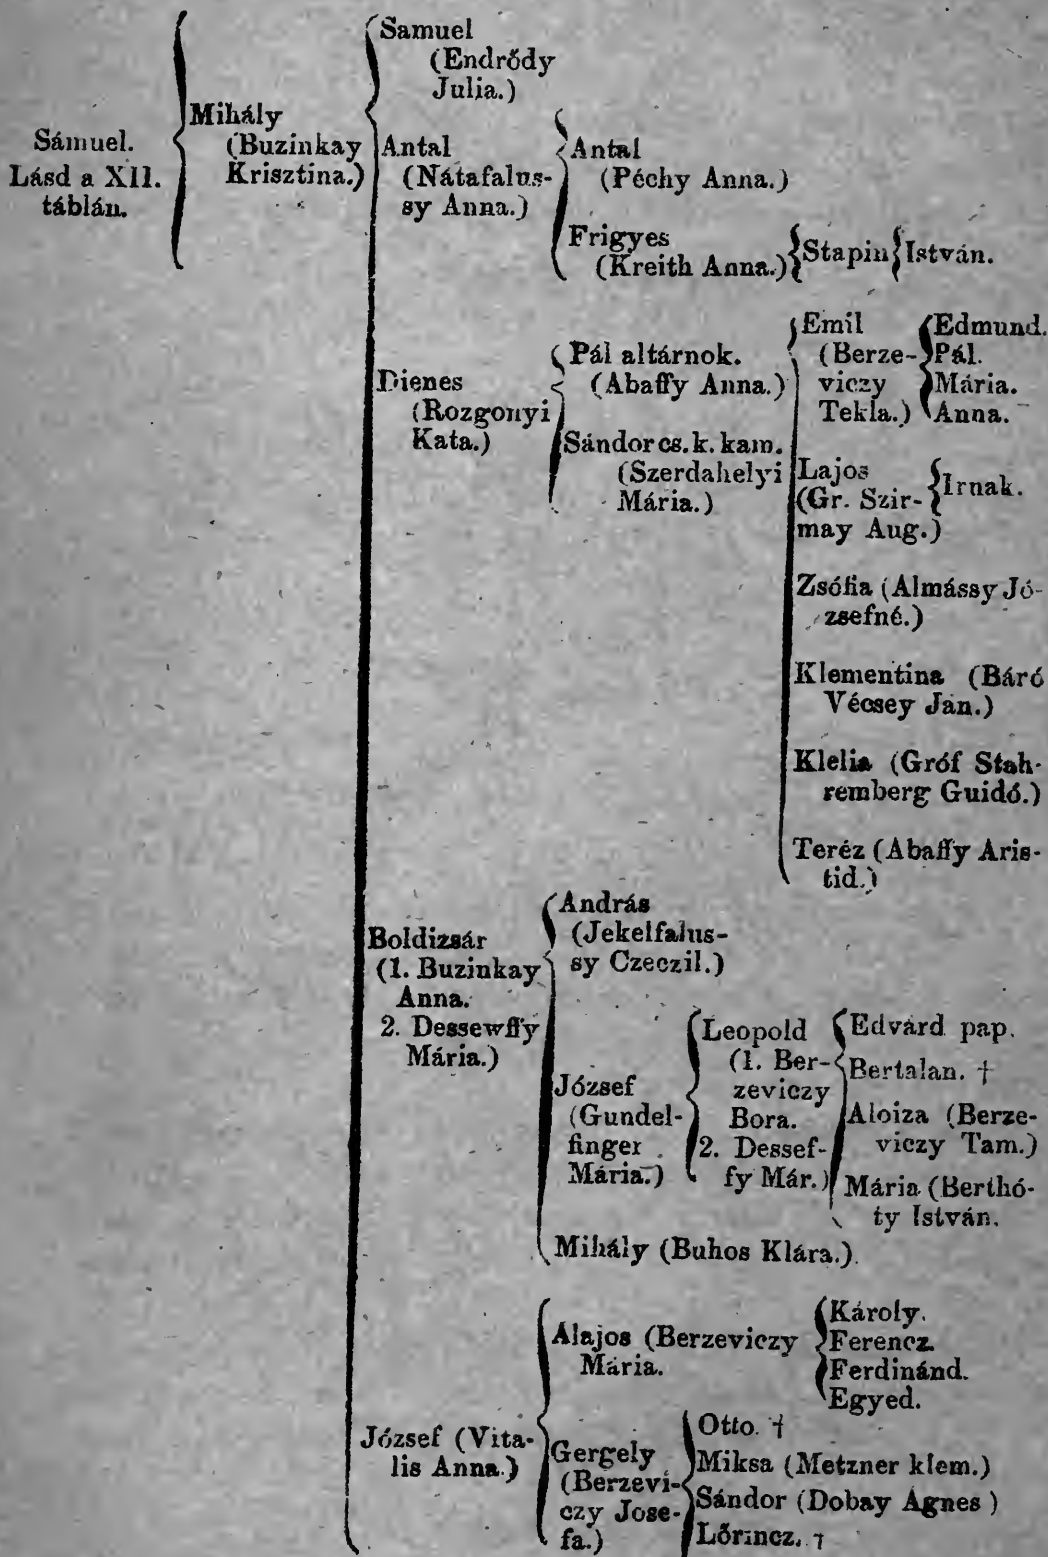 Sámuel.
Lásd a XII.
táblán.
Mihály
(Buzinkay
Krisztina.)
Samuel
(Endrődy
Julia.)
Antal
(Nátafalus-
sy Anna.)
Antal
(Péchy Anna.)
Frigyes
(Kreith Anna.)
Stapin
István.
Dienes
(Rozgonyi
Kata.)
Pál altárnok.
(Abaffy Anna.)
Sándor cs. k. kam.
(Szerdahelyi
Mária.)
Emil
(Berze-
viczy
Tekla.)
Edmund.
Pál.
Mária.
Anna.
Lajos
(Gr. Szir-
may Aug.)
Irnak.
Zsófia (Almássy Jó-
zsefné.)
Klementina (Báró
Vécsey Jan.)
Klelia (Gróf Stah-
remberg Guidó.)
Teréz (Abaffy Aris-
tid.)
Boldizsár
(1. Buzinkay
Anna.
2. Dessewffy
Mária.)
András
(Jekelfalus-
sy Czeczil.)
József
(Gundel-
finger
Mária.)
Leopold
(1. Ber-
zeviczy
Bora.
2. Dessef-
fy Már.)
Edvárd pap.
Bertalan. †
Aloiza (Berze-
viczy Tam.)
Mária (Berthó-
ty István.
Mihály (Buhos Klára.)
József (Vita-
lis Anna.)
Alajos (Berzeviczy
Mária.
Károly.
Ferencz.
Ferdinánd.
Egyed.
Gergely
(Berzevi-
czy Jose-
fa.)
Otto. †
Miksa (Metzner klem.)
Sándor (Dobay Ágnes )
Lőrincz. †